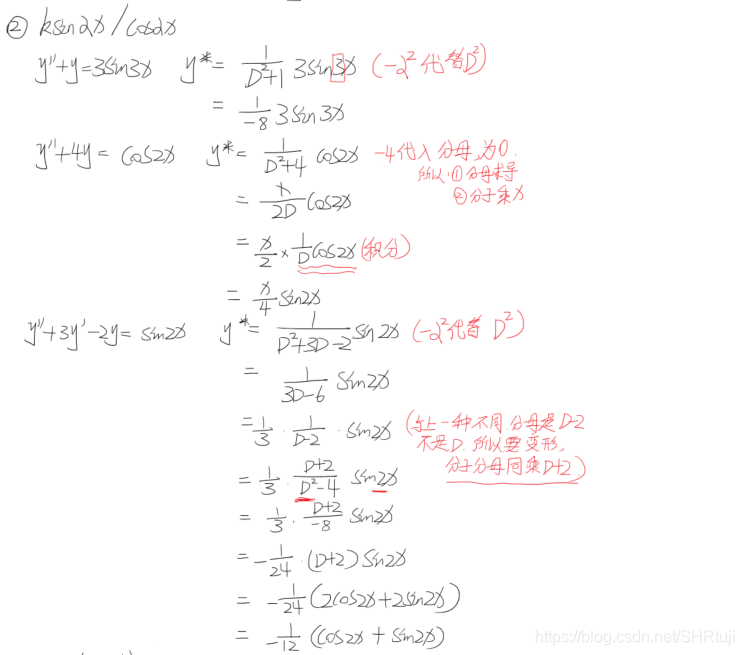 ② ksin2x / cos2x
y''+y=3sin3x y*= 1/(D²+1) 3sin3x (-2²代替D²)
= 1/(-8) 3sin3x
y''+4y= cos2x y*= 1/(D²+4) cos2x -4代入分母,为0.
所以:①分母求导
= x/(2D) cos2x ②分子乘x
= x/2 × 1/D cos2x (积分)
= x/4 sin2x
y''+3y'-2y= sin2x y*= 1/(D²+3D-2) sin2x (-2²代替 D²)
= 1/(3D-6) sin2x
= 1/3 · 1/(D-2) · sin2x (与上一种不同.分母是D-2
不是D.所以要变形,
分子分母同乘D+2)
= 1/3 · (D+2)/(D²-4) sin2x
= 1/3 · (D+2)/(-8) sin2x
= -1/24 · (D+2) sin2x
= -1/24 (2cos2x+2sin2x)
= 1/(-12) (cos2x + sin2x)
https://blog.csdn.net/SHRtuji